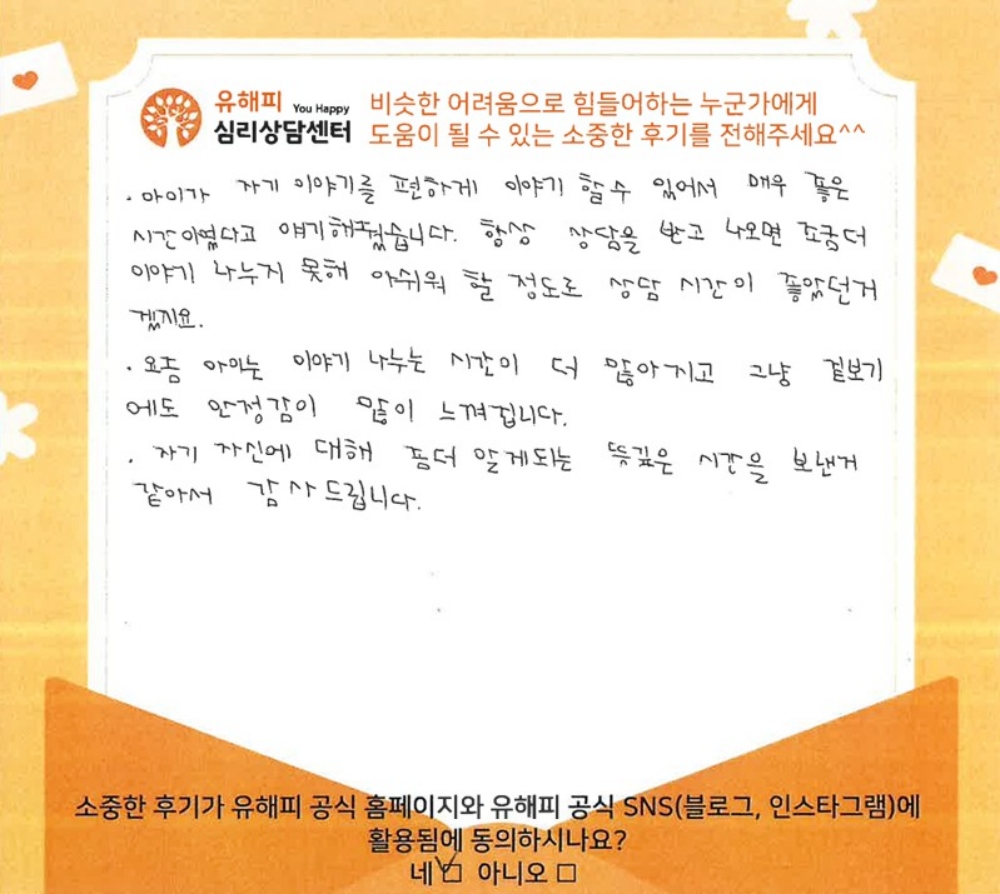 유해피 You Happy
심리상담센터
비슷한 어려움으로 힘들어하는 누군가에게
도움이 될 수 있는 소중한 후기를 전해주세요^^
· 아이가 자기 이야기를 편하게 이야기 할 수 있어서 매우 좋은
시간이었다고 얘기해줬습니다. 항상 상담을 받고 나오면 조금더
이야기 나누지 못해 아쉬워 할 정도로 상담 시간이 좋았던거
겠지요.
· 요즘 아이는 이야기 나누는 시간이 더 많아지고 그냥 겉보기
에도 안정감이 많이 느껴집니다.
· 자기 자신에 대해 좀더 알게되는 뜻깊은 시간을 보낸거
같아서 감사드립니다.
소중한 후기가 유해피 공식 홈페이지와 유해피 공식 SNS(블로그, 인스타그램)에
활용됨에 동의하시나요?
네 ☑ 아니오 □